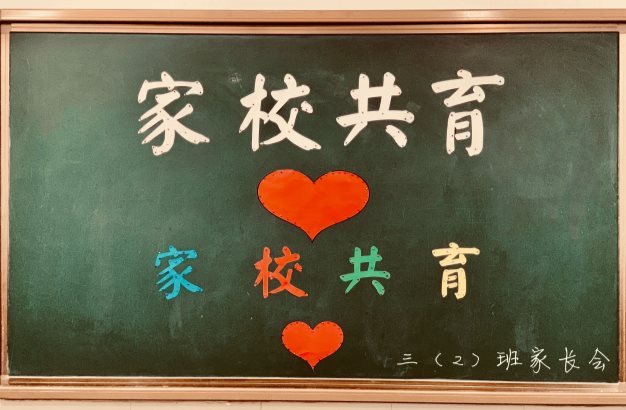 家校共育
家校共育
三（2）班家长会